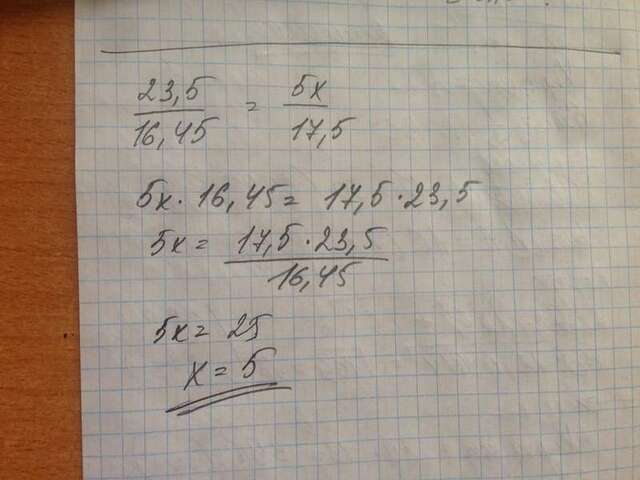 23,5/16,45 = 5x/17,5
5x · 16,45 = 17,5 · 23,5
5x = 17,5 · 23,5/16,45
5x = 25
x = 5